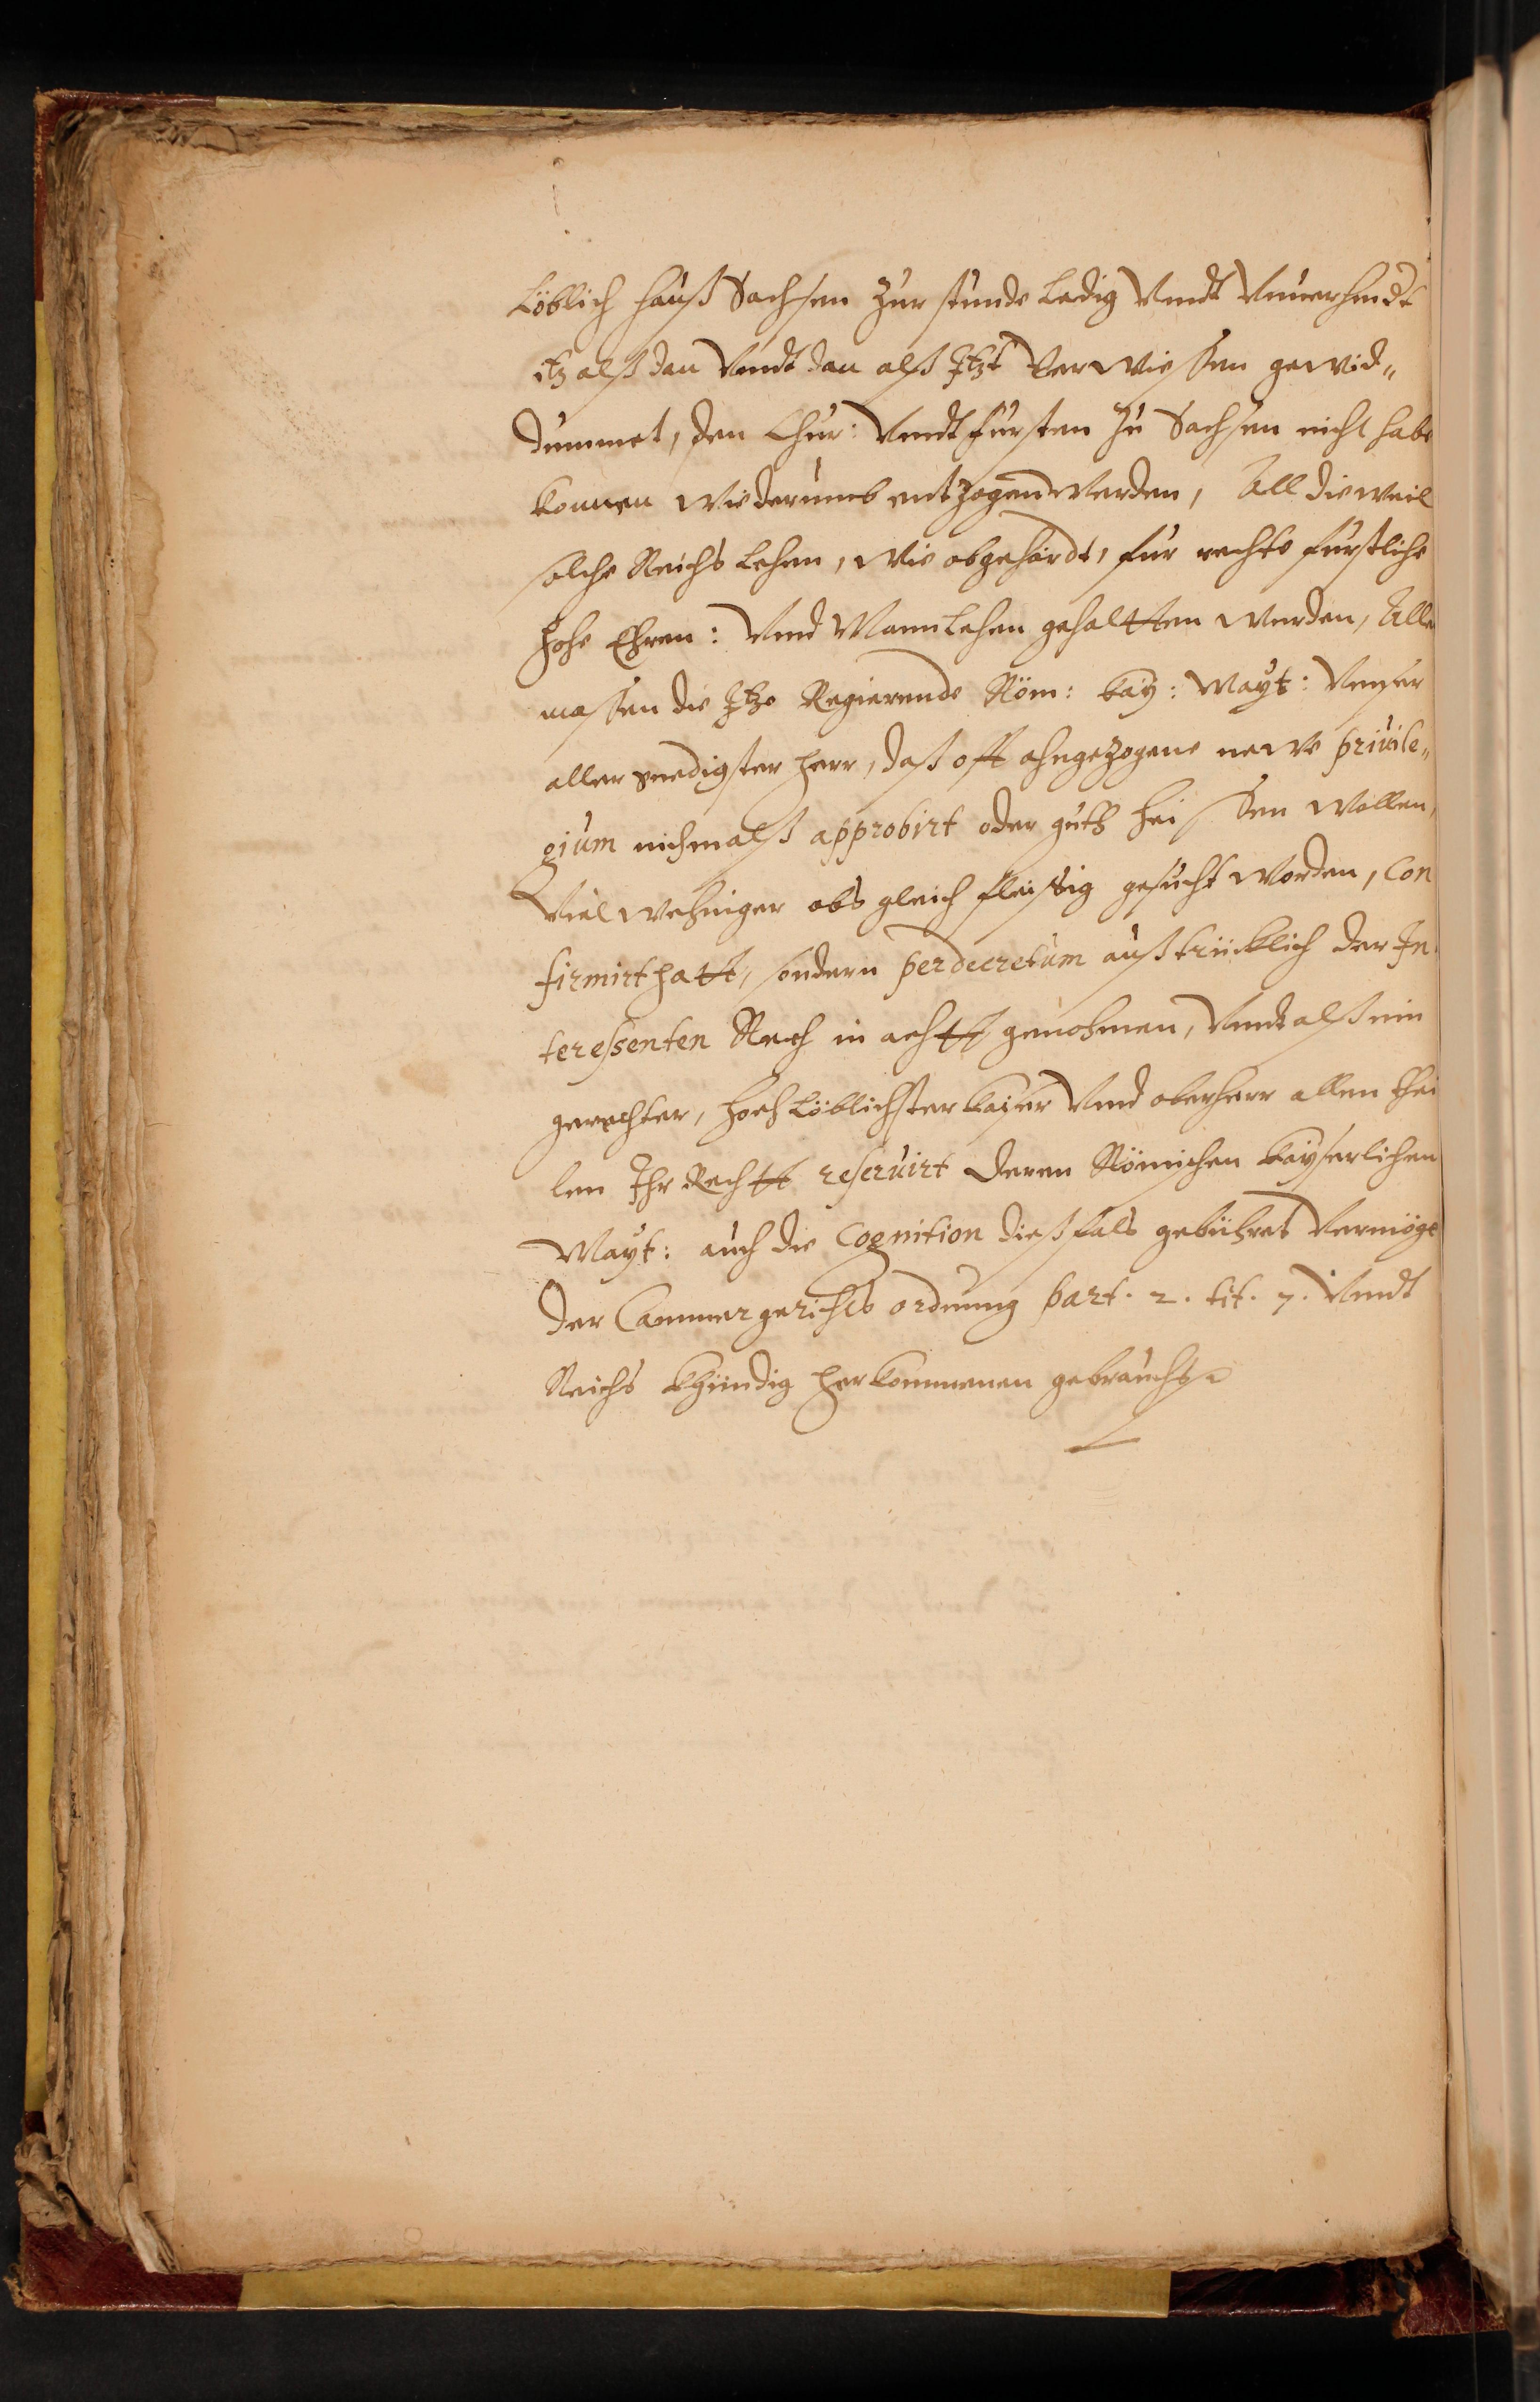 Löblich Hauß Sachsen zur stunde Ledig Vndt Vnuerhindt
itz alß dan Vndt dan alß Itzt Verwiessen gewid„
dummet, den Chur: Vndt fursten zu Sachsen nicht habe
konnen Wiederumb entzogen Werden, All dieweil
solche Reichs Lehen, wie obgehördt, fur rechte furstliche
Hohe Ehren: Vnd MannLehen gehaltten Werden, Aller
massen die Itzo Regierende Röm: Kay: Mayt: Vnser
aller gnedigster Herr, daß offt angezogene newe priuile„
gium nichmalß approbirt oder guth heissen wollen,
Viel wehniger obs gleich fleissig gesucht worden, Con
firmirt hatt, sondern per decretum außtrücklich der In
teressenten Rech in achtt genohmen, Vndt alß ein
gerechter, Hoch Löblichster Kaiser Vnd oberherr allen thei
len Ihr Rechtt reseruirt Deren Römischen Kayserlichen
Mayt: auch die Cognition dießfals gebühret Vermöge
der Cammergerichts ordnung part. 2. tit. 7. Vndt
Reichs khündig Herkommenen gebrauchs